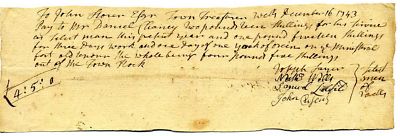 To John Storer Esqr Town Treasurer Wells December 16 1743
Pay to Mr Daniel Chaney two pounds ten Shillings for his Service
as Select man this present year and one pound fifteen Shillings
for three days work and one day of one yoak of oxen on ye
at ye the whole being four pound five Shillings
out of the Town Stock
4 : 5 : 0
Joseph Sayer
Wells
Samuel
John
Select
men
of
Wells